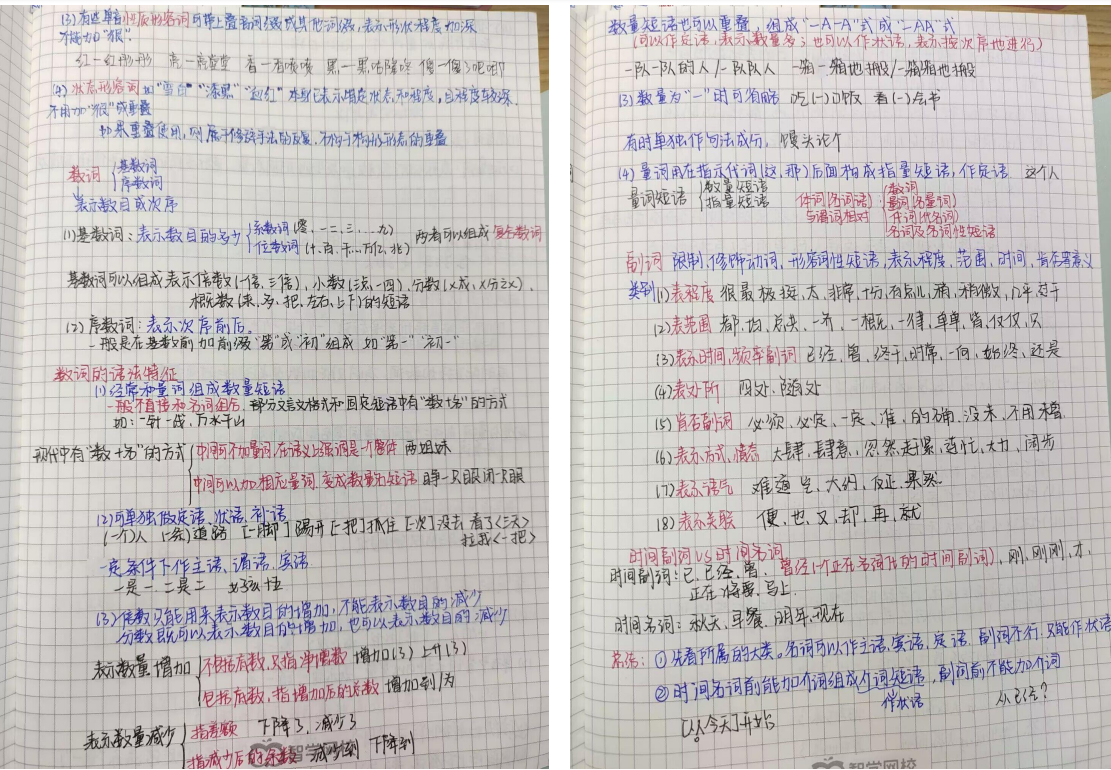 (3)有些单音性质形容词可带上叠音词缀或其他词缀,表示形状程度加深
不能加"很".
红—红彤彤 亮—亮堂堂
(4)状态形容词如"雪白""漆黑"
不用加"很"或重叠
如果重叠使用,则属于修辞手法的反复,不同于构形形态的重叠
数词 { 基数词
序数词
表示数目或次序
(1)基数词:表示数目的多少 { 系数词(零、一二、三....九)
位数词(十、百、千...万亿、兆)
两者可以组成复合数词
基数词可以组成表示倍数(一倍、三倍),小数(三点一四),分数(X成,X分之X),
概数(来、多、把、左右、上下)的短语
(2)序数词:表示次序前后。
一般是在基数前加前缀"第"或"初"组成 如"第一""初一"
数词的语法特征
(1)经常和量词组成数量短语
一般不直接和名词组合,部分文言文格式和固定短语中有"数+名"的方式
如:一针一线、万水千山
现代中有"数+名"的方式 { 中间可不加量词,在语义上强调是一个整体 两姐妹
中间可以加相应量词,变成数量名短语 睁一只眼闭一只眼
(2)可单独做定语、状语、补语
(一个)人 (一条)道路 [一脚]踢开 [一把]抓住 [一次]没去 看了<三天>
拉我<一把>
一定条件下作主语、谓语、宾语
一是一 二是二
(3)倍数只能用来表示数目的增加,不能表示数目的减少
分数既可以表示数目的增加,也可以表示数目的减少
表示数量增加 { 不包括底数,只指净增数 增加(了) 上升(了)
包括底数,指增加后的总数 增加到/为
表示数量减少 { 指差额 下降了、减少了
指减少后的余数 减少到 下降到
智学网校
数量短语也可以重叠,组成"一A一A"式或"一AA"式
(可以作定语,表示数量多;也可以作状语,表示按次序地进行)
一队一队的人/一队队人 一箱一箱地搬/一箱箱地搬
(3)数量为"一"时可省略 吃(一)口饭 看(一)会书
有时单独作句法成分, 馒头论个
(4)量词用在指示代词(这、那)后面构成指量短语,作定语 这个人
量词短语 { 数量短语
指量短语
体词(名词语)
与谓词相对 { 数词
量词(名量词)
代词(代名词)
名词及名词性短语
副词 限制、修饰动词、形容词性短语,表示程度、范围、时间、肯否等意义
类别(1)表程度 很、最、极、挺、太、非常、十分、有点儿、稍、稍微、几乎、过于
(2)表范围 都、均、总共、一齐、一概、一律、单单、皆、仅仅、只
(3)表示时间,频率副词 已经、曾、终于、时常、一向、始终、还是
(4)表处所 四处、随处
(5)肯否副词 必须、必定、一定、准、的确、没、未、不用、未曾
(6)表示方式,情态 大肆、肆意、忽然、赶紧、连忙、大力、阔步
(7)表示语气 难道、岂、大约、反正、果然
(8)表示关联 便、也、又、却、再、就
时间副词VS时间名词
时间副词:已、已经、曾、曾经(一个正在名词化的时间副词),刚、刚刚、才、
正在、将要、马上
时间名词:秋天、早晨、明年、现在
总结:①先看所属的大类。名词可以作主语、宾语、定语、副词不行,只能作状语
②时间名词前能加介词组成介词短语,副词前不能加介词
作状语
从已经?
[从今天]开始
智学网校